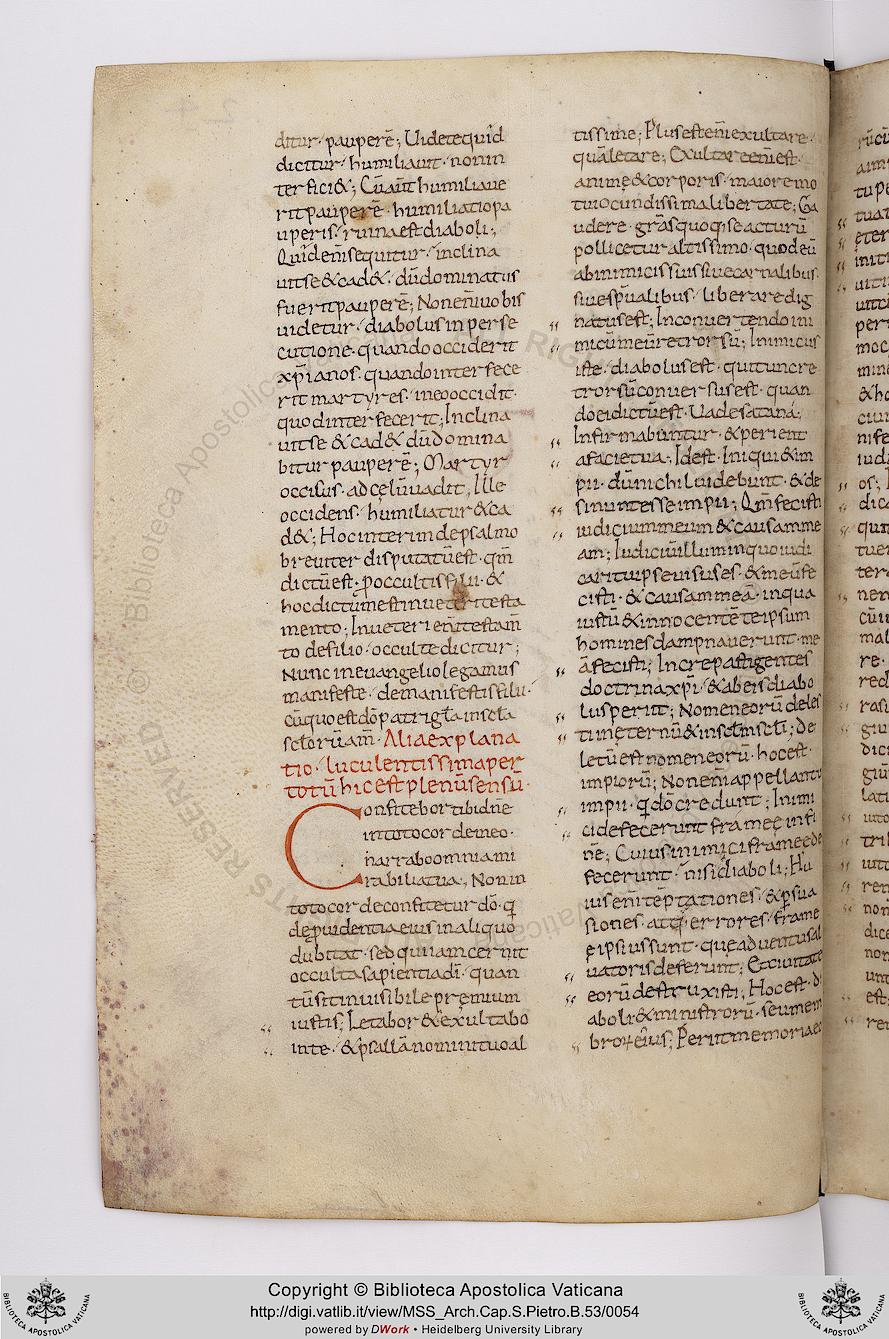 ditur· pauperē; Uidete quid
dicitur· humiliavit· non in
terficiet; Cū aūt humiliave
rit pauperē· humiliatio pa
uperis· ruina est diaboli;
Quid em̄ sequitur· inclina
vit se & cad&· dū dominatus
fuerit pauperē; Non em̄ vobis
videtur· diabolus in perse
cutione· quando occiderit
xp̄ianos· quando interfece
rit martyres· in eo occidit·
quod interfecerit; Inclina
vit se & cad& dū domina
bitur pauperē; Martyr
occisus· ad cęlū vadit; Ille
occidens· humiliatur & ca
d&; Hoc interim de psalmo
breviter disputatū est· qm̄
dictū est· p occultis filii· &
hoc dictū est in veteri testa
mento; In veteri em̄ testam̄
to de filio· occulte dicitur;
Nunc in evangelio legamus
manifeste· de manifestis filii·
cū quo est dō patri gła in scła
scłorū am̄· Alia explana
tio· luculentissima per
totū hic est plenus sensū·
Confitebor tibi dn̄e
in toto corde meo·
narrabo omnia mi
rabilia tua; Non in
toto corde confitetur dō· q
de pvidentia eius in aliquo
dubitat· sed qui iam cernit
occulta sapientia dī· quan
tū sit invisibile premium
iustis; Letabor & exultabo
in te· & psallā nomini tuo al
tissime; Plus est em̄ exultare·
quā letare; Exultare em̄ est·
anime & corporis· maiore mo
tu iocundissima libertate; Ga
udere· gr̄as quoq; se acturū
pollicetur altissimo· quod eū
ab inimicis suis sive carnalibus·
sive sp̄ualibus· liberare dig
natus est; In convertendo ini
micū meū retrorsū; Inimicus
iste· diabolus est· qui tunc re
trorsū conversus est· quan
do ei dictū est· Vade satana;
Infirmabuntur· & perient
a facie tua; Idest· Iniqui & im
pii· dū nichil videbunt· & de
sinunt esse impii; Qm̄ fecisti
iudicium meum & causam me
am; Iudiciū illum in quo iudi
caritu ipse visus es· & meū fe
cisti· & causam meā· in qua
iustū & innocentē te ipsum
homines dampnaverunt· me
ā fecisti; Increpasti gentes
doctrina xp̄i· & ab eis diabo
lus periit; Nomen eorū deles
ti in ęternū & in scłm scłi; De
letū est nomen eorū· hoc est·
impiorū; Non em̄ appellantur
impii· q̄ dō credunt; Inimi
ci defecerunt frameę in fi
nē; Cuius inimici frameę de
fecerunt· nisi diaboli; Hu
ius em̄ tēptationes· & psua
siones· atq; errores· frame
ę ipsius sunt· que adventu sal
vatoris deferunt; Et civitate
eorū destruxisti; Hoc est· di
aboli & ministrorū· seu mem
brorū eius; Periit memoria eo